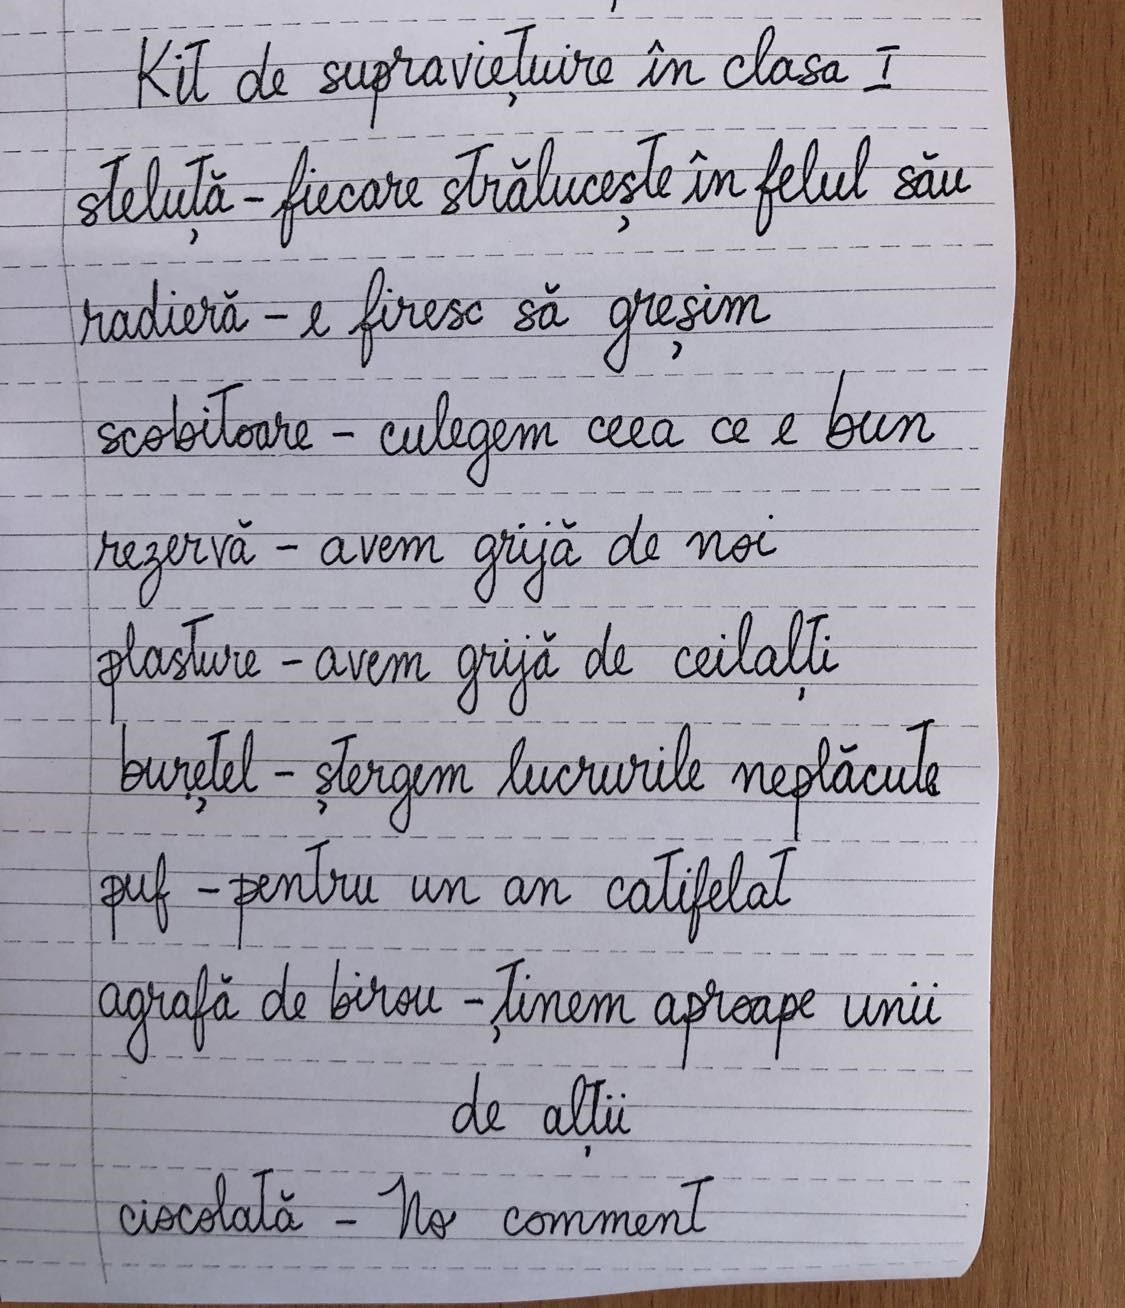 Kit de supraviețuire în clasa I
steluță - fiecare strălucește în felul său
radieră - e firesc să greșim
scobitoare - culegem ceea ce e bun
rezervă - avem grijă de noi
plasture - avem grijă de ceilalți
burețel - ștergem lucrurile neplăcute
puf - pentru un an catifelat
agrafă de birou - ținem aproape unii
de alții
ciocolată - No comment